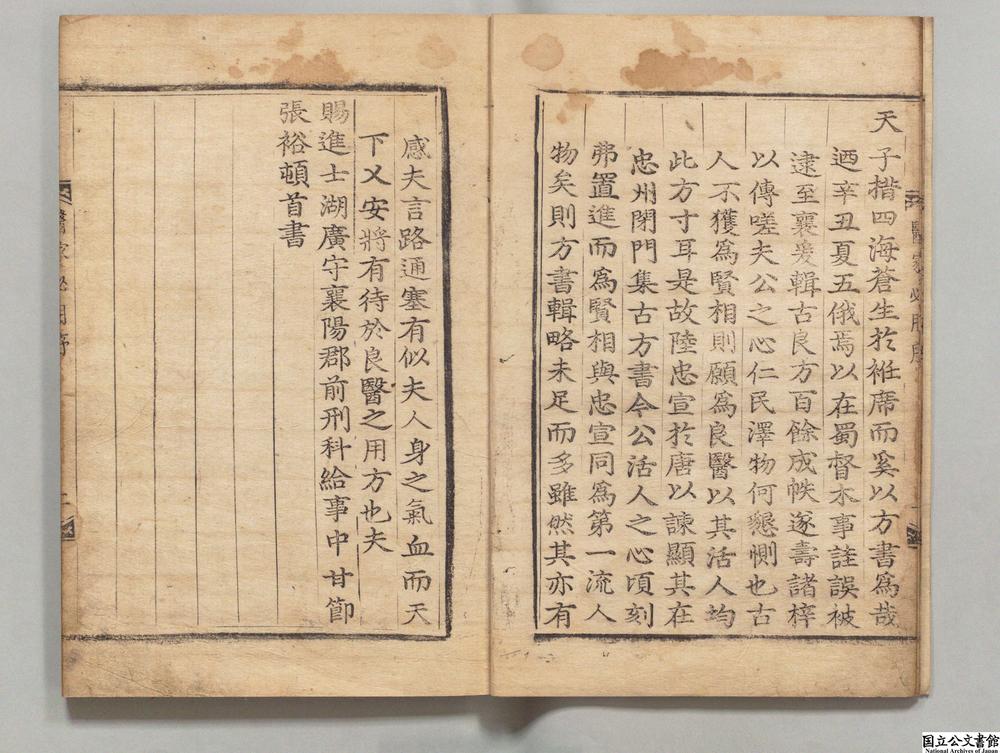 天子措四海蒼生於袵席而奚以方書爲哉
迺辛丑夏五俄焉以在蜀督木事詿誤被
逮至襄爰輯古良方百餘成帙遂壽諸梓
以傳嗟夫公之心仁民澤物何懇惻也古
人不獲爲賢相則願爲良醫以其活人均
此方寸耳是故陸忠宣於唐以諫顯其在
忠州閉門集古方書今公活人之心頃刻
弗置進而爲賢相與忠宣同爲第一流人
物矣則方書輯略未足而多雖然其亦有
感夫言路通塞有似夫人身之氣血而天
下乂安將有待於良醫之用方也夫
賜進士湖廣守襄陽郡前刑科給事中甘節
張裕頓首書
國立公文書館
National Archives of Japan